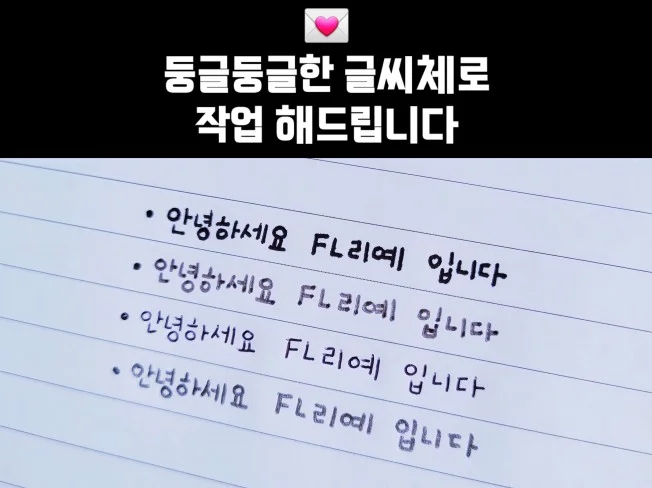 둥글둥글한 글씨체로
작업 해드립니다
• 안녕하세요 FL리예 입니다
• 안녕하세요 FL리예 입니다
• 안녕하세요 FL리예 입니다
• 안녕하세요 FL리예 입니다